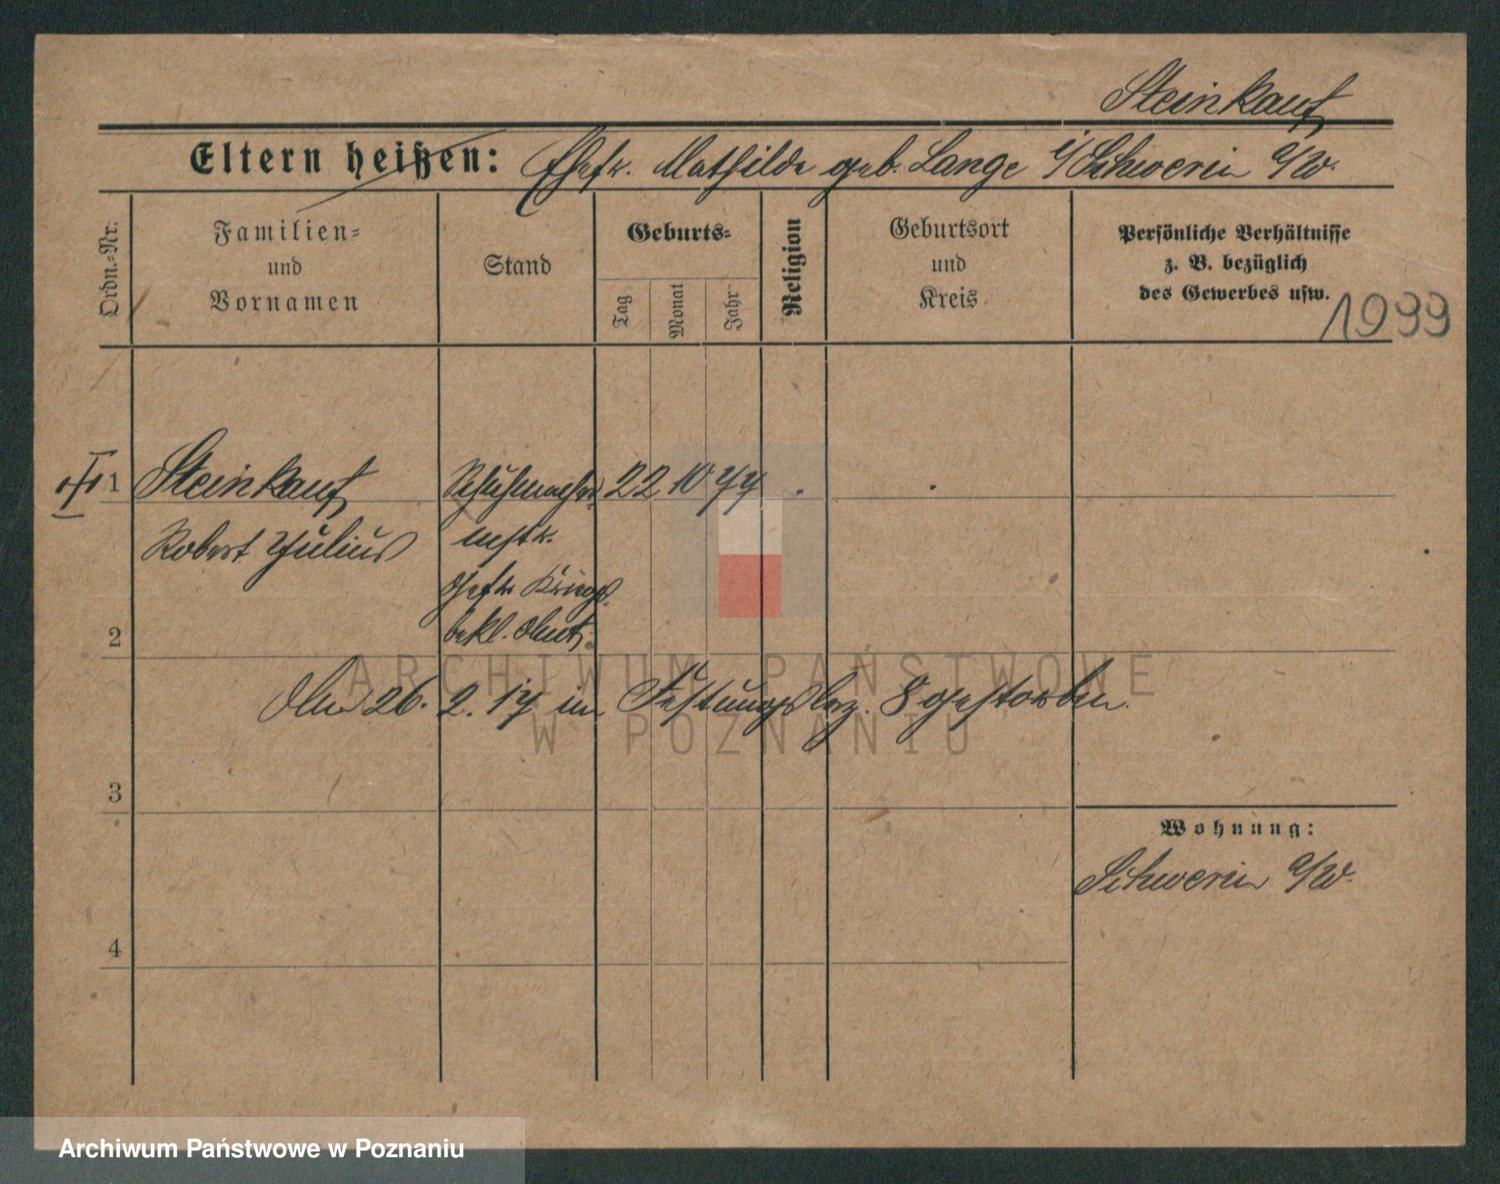 Steinkauf
Eltern heißen: Ehefr. Mathilde geb. Lange i/Schwerin a/W.
Ordn.-Nr.
Familien-
und
Vornamen
Stand
Geburts-
Tag
Monat
Jahr
Religion
Geburtsort
und
Kreis
Persönliche Verhältnisse
z. B. bezüglich
des Gewerbes usw.
1999
1 Steinkauf Schuhmacher 22 10 77
Robert Julius mstr.
Gefr. Kriegs
bekl. Amt.
2
Am 26. 2. 17 im Festungslaz. 8 gestorben.
3
Wohnung:
Schwerin a/W.
4
ARCHIWUM PAŃSTWOWE
W POZNANIU
Archiwum Państwowe w Poznaniu